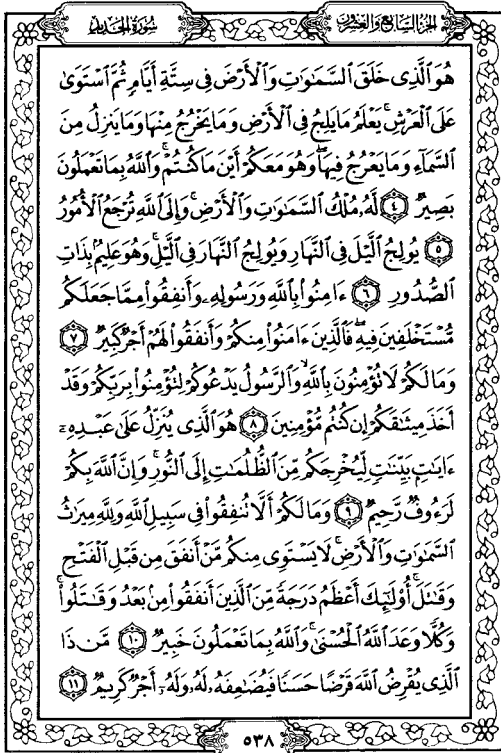 الجزء السابع والعشرون
سورة الحديد
هُوَ ٱلَّذِى خَلَقَ ٱلسَّمَٰوَٰتِ وَٱلْأَرْضَ فِى سِتَّةِ أَيَّامٍ ثُمَّ ٱسْتَوَىٰ
عَلَى ٱلْعَرْشِ ۚ يَعْلَمُ مَا يَلِجُ فِى ٱلْأَرْضِ وَمَا يَخْرُجُ مِنْهَا وَمَا يَنزِلُ مِنَ
ٱلسَّمَآءِ وَمَا يَعْرُجُ فِيهَا ۖ وَهُوَ مَعَكُمْ أَيْنَ مَا كُنتُمْ ۚ وَٱللَّهُ بِمَا تَعْمَلُونَ
بَصِيرٌ ٤ لَّهُۥ مُلْكُ ٱلسَّمَٰوَٰتِ وَٱلْأَرْضِ ۚ وَإِلَى ٱللَّهِ تُرْجَعُ ٱلْأُمُورُ
٥ يُولِجُ ٱلَّيْلَ فِى ٱلنَّهَارِ وَيُولِجُ ٱلنَّهَارَ فِى ٱلَّيْلِ ۚ وَهُوَ عَلِيمٌۢ بِذَاتِ
ٱلصُّدُورِ ٦ ءَامِنُوا۟ بِٱللَّهِ وَرَسُولِهِۦ وَأَنفِقُوا۟ مِمَّا جَعَلَكُم
مُّسْتَخْلَفِينَ فِيهِ ۖ فَٱلَّذِينَ ءَامَنُوا۟ مِنكُمْ وَأَنفَقُوا۟ لَهُمْ أَجْرٌ كَبِيرٌ ٧
وَمَا لَكُمْ لَا تُؤْمِنُونَ بِٱللَّهِ ۙ وَٱلرَّسُولُ يَدْعُوكُمْ لِتُؤْمِنُوا۟ بِرَبِّكُمْ وَقَدْ
أَخَذَ مِيثَٰقَكُمْ إِن كُنتُم مُّؤْمِنِينَ ٨ هُوَ ٱلَّذِى يُنَزِّلُ عَلَىٰ عَبْدِهِۦٓ
ءَايَٰتٍۭ بَيِّنَٰتٍ لِّيُخْرِجَكُم مِّنَ ٱلظُّلُمَٰتِ إِلَى ٱلنُّورِ ۚ وَإِنَّ ٱللَّهَ بِكُمْ
لَرَءُوفٌ رَّحِيمٌ ٩ وَمَا لَكُمْ أَلَّا تُنفِقُوا۟ فِى سَبِيلِ ٱللَّهِ وَلِلَّهِ مِيرَٰثُ
ٱلسَّمَٰوَٰتِ وَٱلْأَرْضِ ۚ لَا يَسْتَوِى مِنكُم مَّنْ أَنفَقَ مِن قَبْلِ ٱلْفَتْحِ
وَقَٰتَلَ ۚ أُو۟لَٰٓئِكَ أَعْظَمُ دَرَجَةً مِّنَ ٱلَّذِينَ أَنفَقُوا۟ مِنۢ بَعْدُ وَقَٰتَلُوا۟ ۚ
وَكُلًّا وَعَدَ ٱللَّهُ ٱلْحُسْنَىٰ ۚ وَٱللَّهُ بِمَا تَعْمَلُونَ خَبِيرٌ ١٠ مَّن ذَا
ٱلَّذِى يُقْرِضُ ٱللَّهَ قَرْضًا حَسَنًا فَيُضَٰعِفَهُۥ لَهُۥ وَلَهُۥٓ أَجْرٌ كَرِيمٌ ١١
٥٣٨